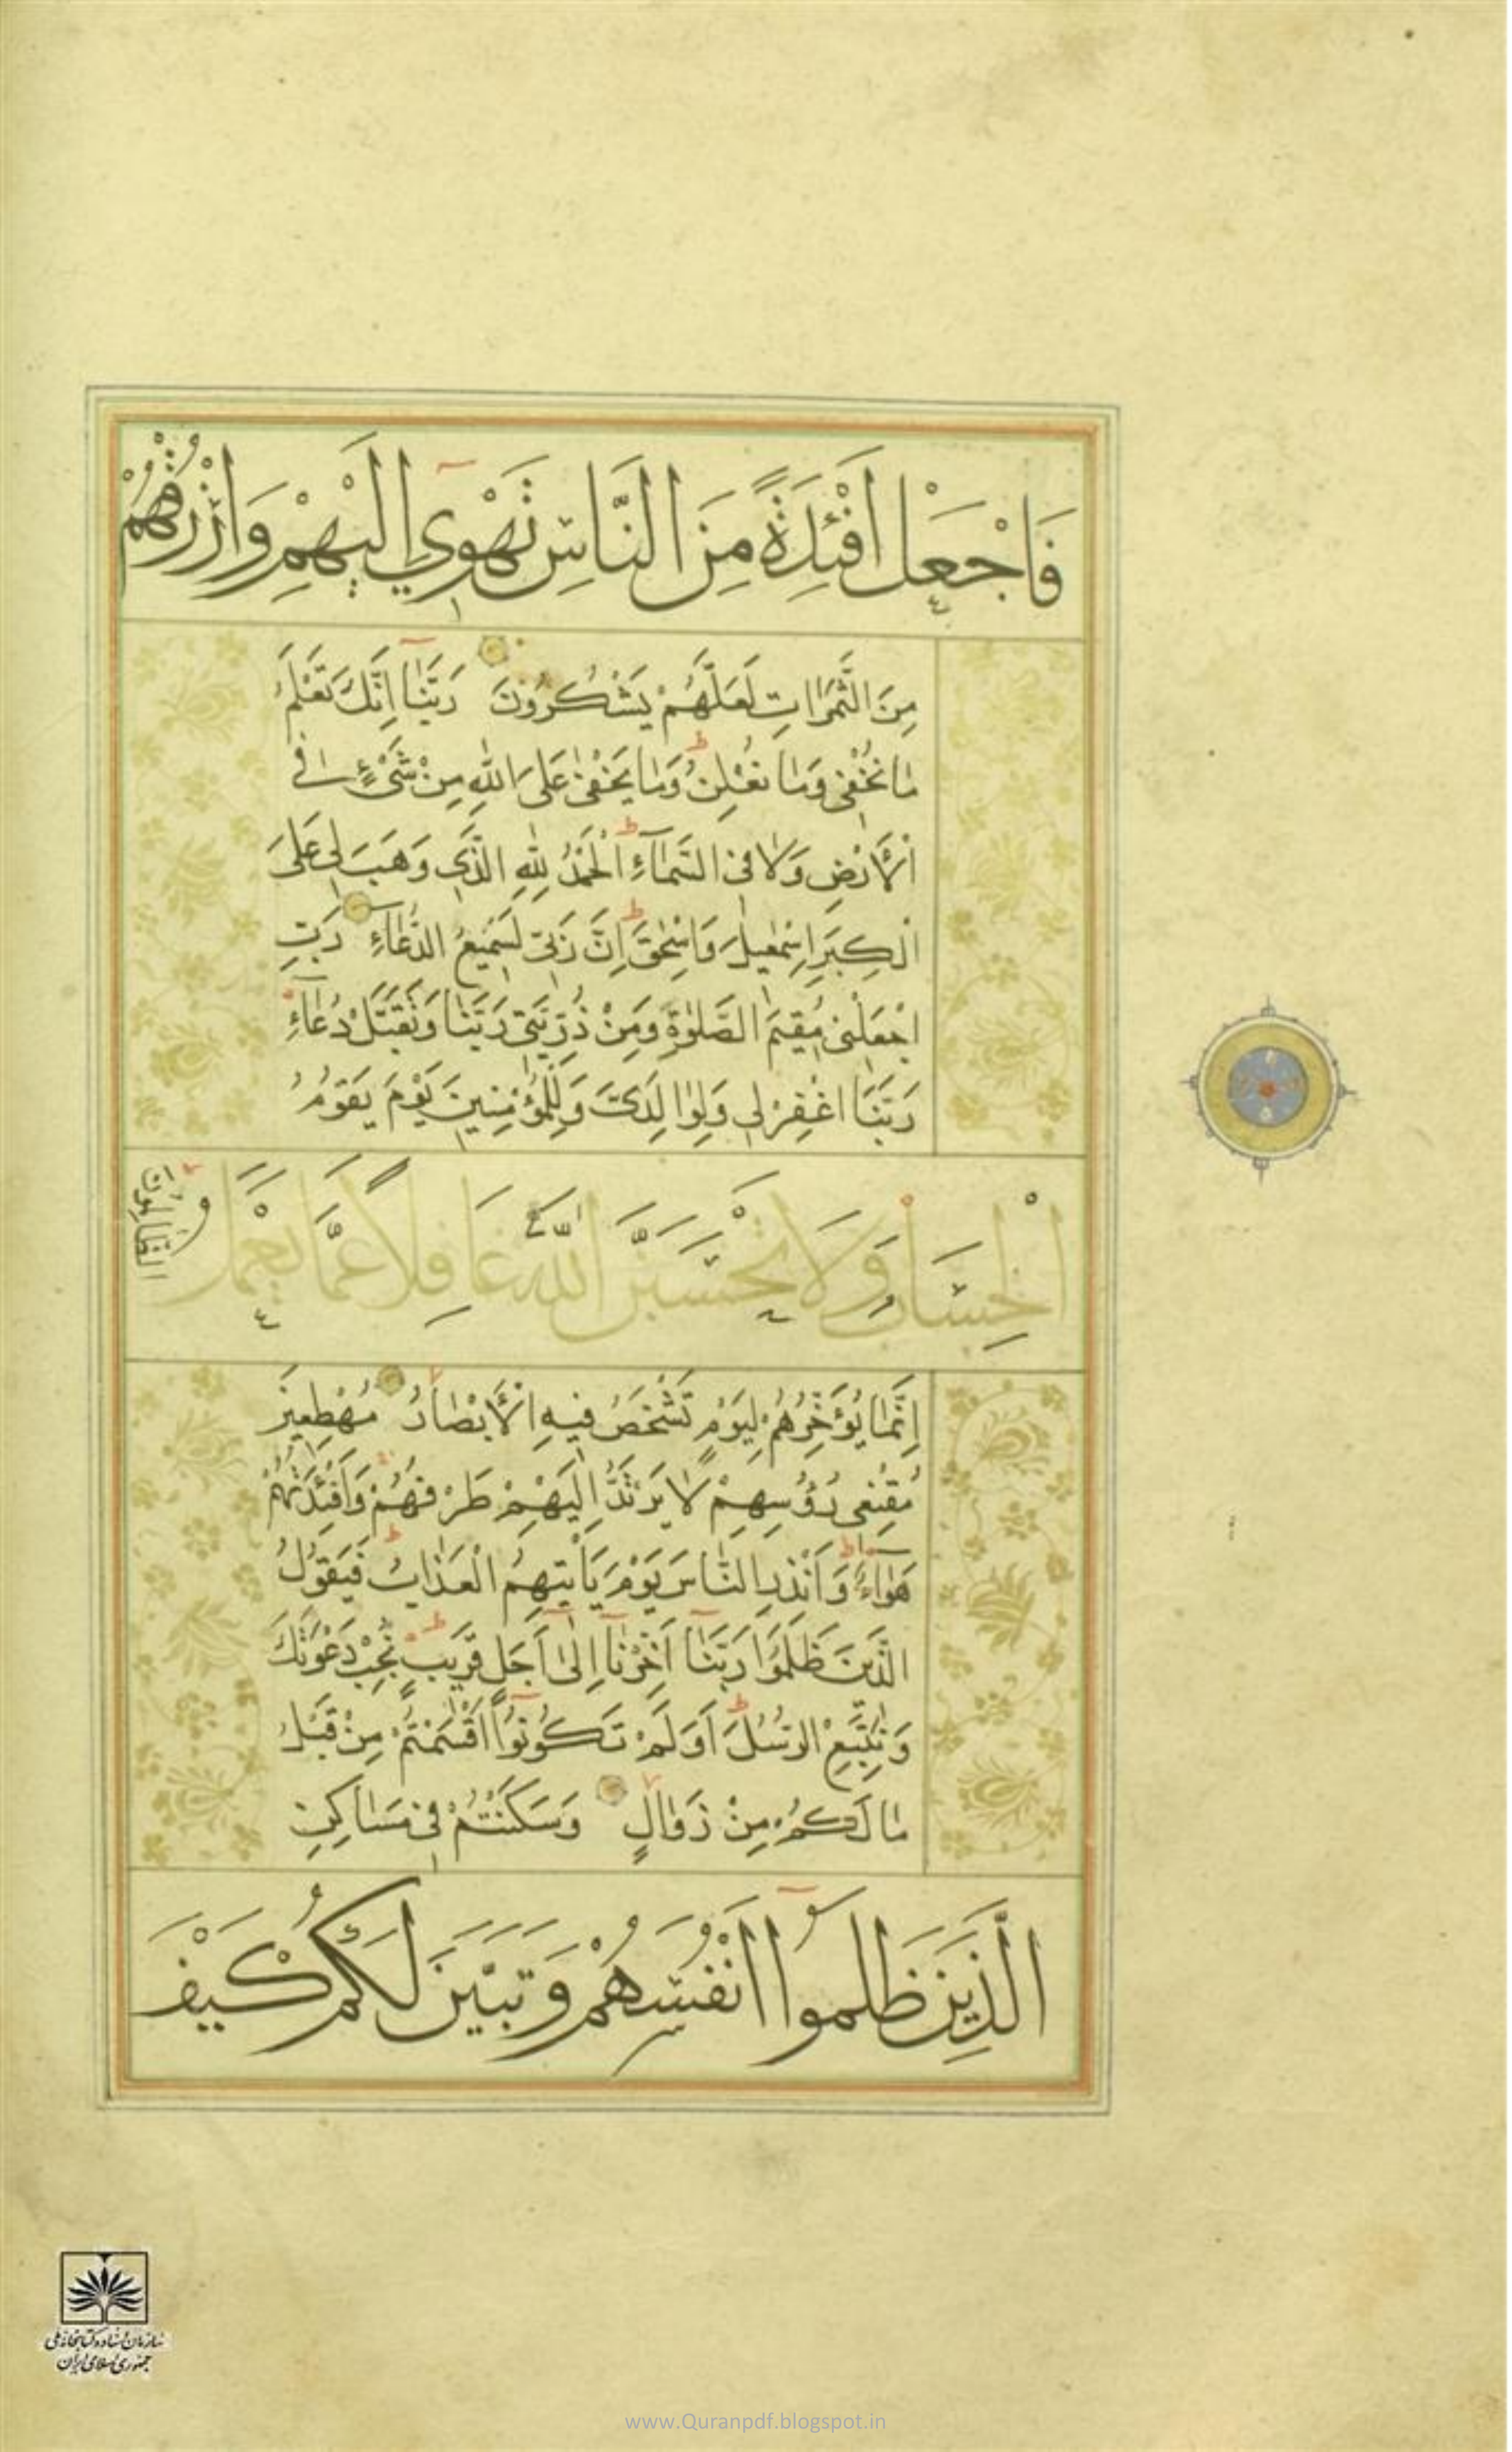 فَاجْعَلْ اَفْئِدَةً مِنَ النَّاسِ تَهْوِي اِلَيْهِمْ وَارْزُقْهُمْ
مِنَ الثَّمَرَاتِ لَعَلَّهُمْ يَشْكُرُونَ رَبَّنَا اِنَّكَ تَعْلَمُ
مَا نُخْفِي وَمَا نُعْلِنُ وَمَا يَخْفٰى عَلَى اللّٰهِ مِنْ شَيْءٍ فِي
الْاَرْضِ وَلَا فِي السَّمَآءِ اَلْحَمْدُ لِلّٰهِ الَّذِي وَهَبَ لِي عَلَى
الْكِبَرِ اِسْمٰعِيلَ وَاِسْحٰقَ اِنَّ رَبِّي لَسَمِيعُ الدُّعَآءِ رَبِّ
اجْعَلْنِي مُقِيمَ الصَّلٰوةِ وَمِنْ ذُرِّيَّتِي رَبَّنَا وَتَقَبَّلْ دُعَآءِ
رَبَّنَا اغْفِرْ لِي وَلِوَالِدَيَّ وَلِلْمُؤْمِنِينَ يَوْمَ يَقُومُ
الْحِسَابُ وَلَا تَحْسَبَنَّ اللّٰهَ غَافِلًا عَمَّا يَعْمَلُ
الظَّالِمُونَ
اِنَّمَا يُؤَخِّرُهُمْ لِيَوْمٍ تَشْخَصُ فِيهِ الْاَبْصَارُ مُهْطِعِينَ
مُقْنِعِي رُؤُسِهِمْ لَا يَرْتَدُّ اِلَيْهِمْ طَرْفُهُمْ وَاَفْئِدَتُهُمْ
هَوَآءٌ وَاَنْذِرِ النَّاسَ يَوْمَ يَأْتِيهِمُ الْعَذَابُ فَيَقُولُ
الَّذِينَ ظَلَمُوا رَبَّنَآ اَخِّرْنَآ اِلٰى اَجَلٍ قَرِيبٍ نُجِبْ دَعْوَتَكَ
وَنَتَّبِعِ الرُّسُلَ اَوَلَمْ تَكُونُوا اَقْسَمْتُمْ مِنْ قَبْلُ
مَا لَكُمْ مِنْ زَوَالٍ وَسَكَنْتُمْ فِي مَسَاكِنِ
الَّذِينَ ظَلَمُوا اَنْفُسَهُمْ وَتَبَيَّنَ لَكُمْ كَيْفَ
سازمان اسناد و کتابخانه ملی
جمهوری اسلامی ایران
www.Quranpdf.blogspot.in